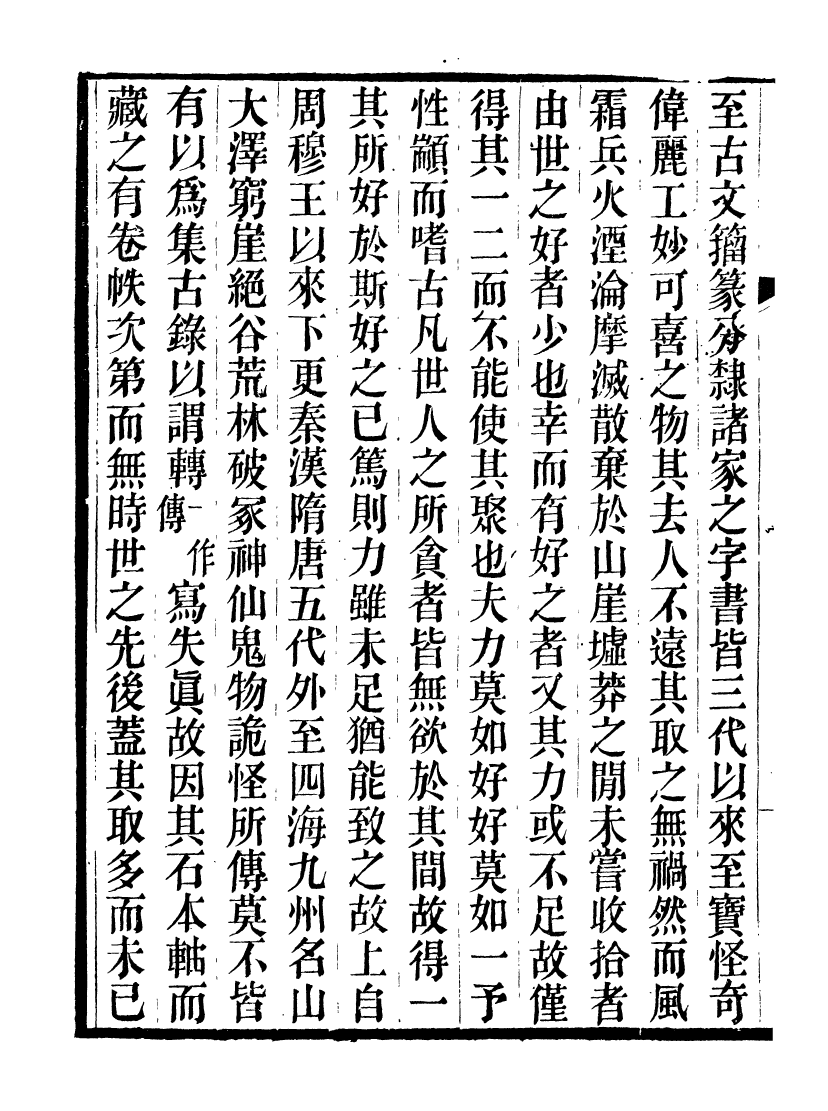 至古文籀篆分隸諸家之字書皆三代以來至寶怪奇
偉麗工妙可喜之物其去人不遠其取之無禍然而風
霜兵火湮淪摩滅散棄於山崖墟莽之閒未嘗收拾者
由世之好者少也幸而有好之者又其力或不足故僅
得其一二而不能使其聚也夫力莫如好好莫如一予
性顓而嗜古凡世人之所貪者皆無欲於其間故得一
其所好於斯好之已篤則力雖未足猶能致之故上自
周穆王以來下更秦漢隋唐五代外至四海九州名山
大澤窮崖絕谷荒林破冢神仙鬼物詭怪所傳莫不皆
有以爲集古錄以謂轉一作傳寫失眞故因其石本軸而
藏之有卷帙次第而無時世之先後蓋其取多而未已